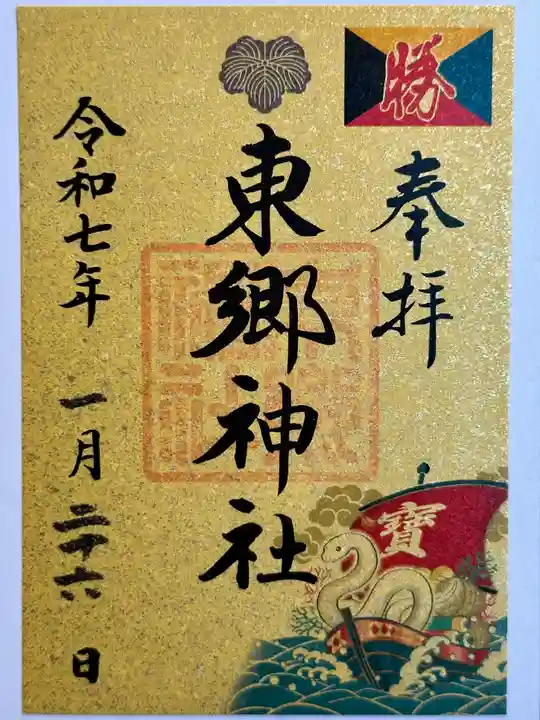 勝
奉拝
東郷神社
令和七年 一月 二十六 日
寳